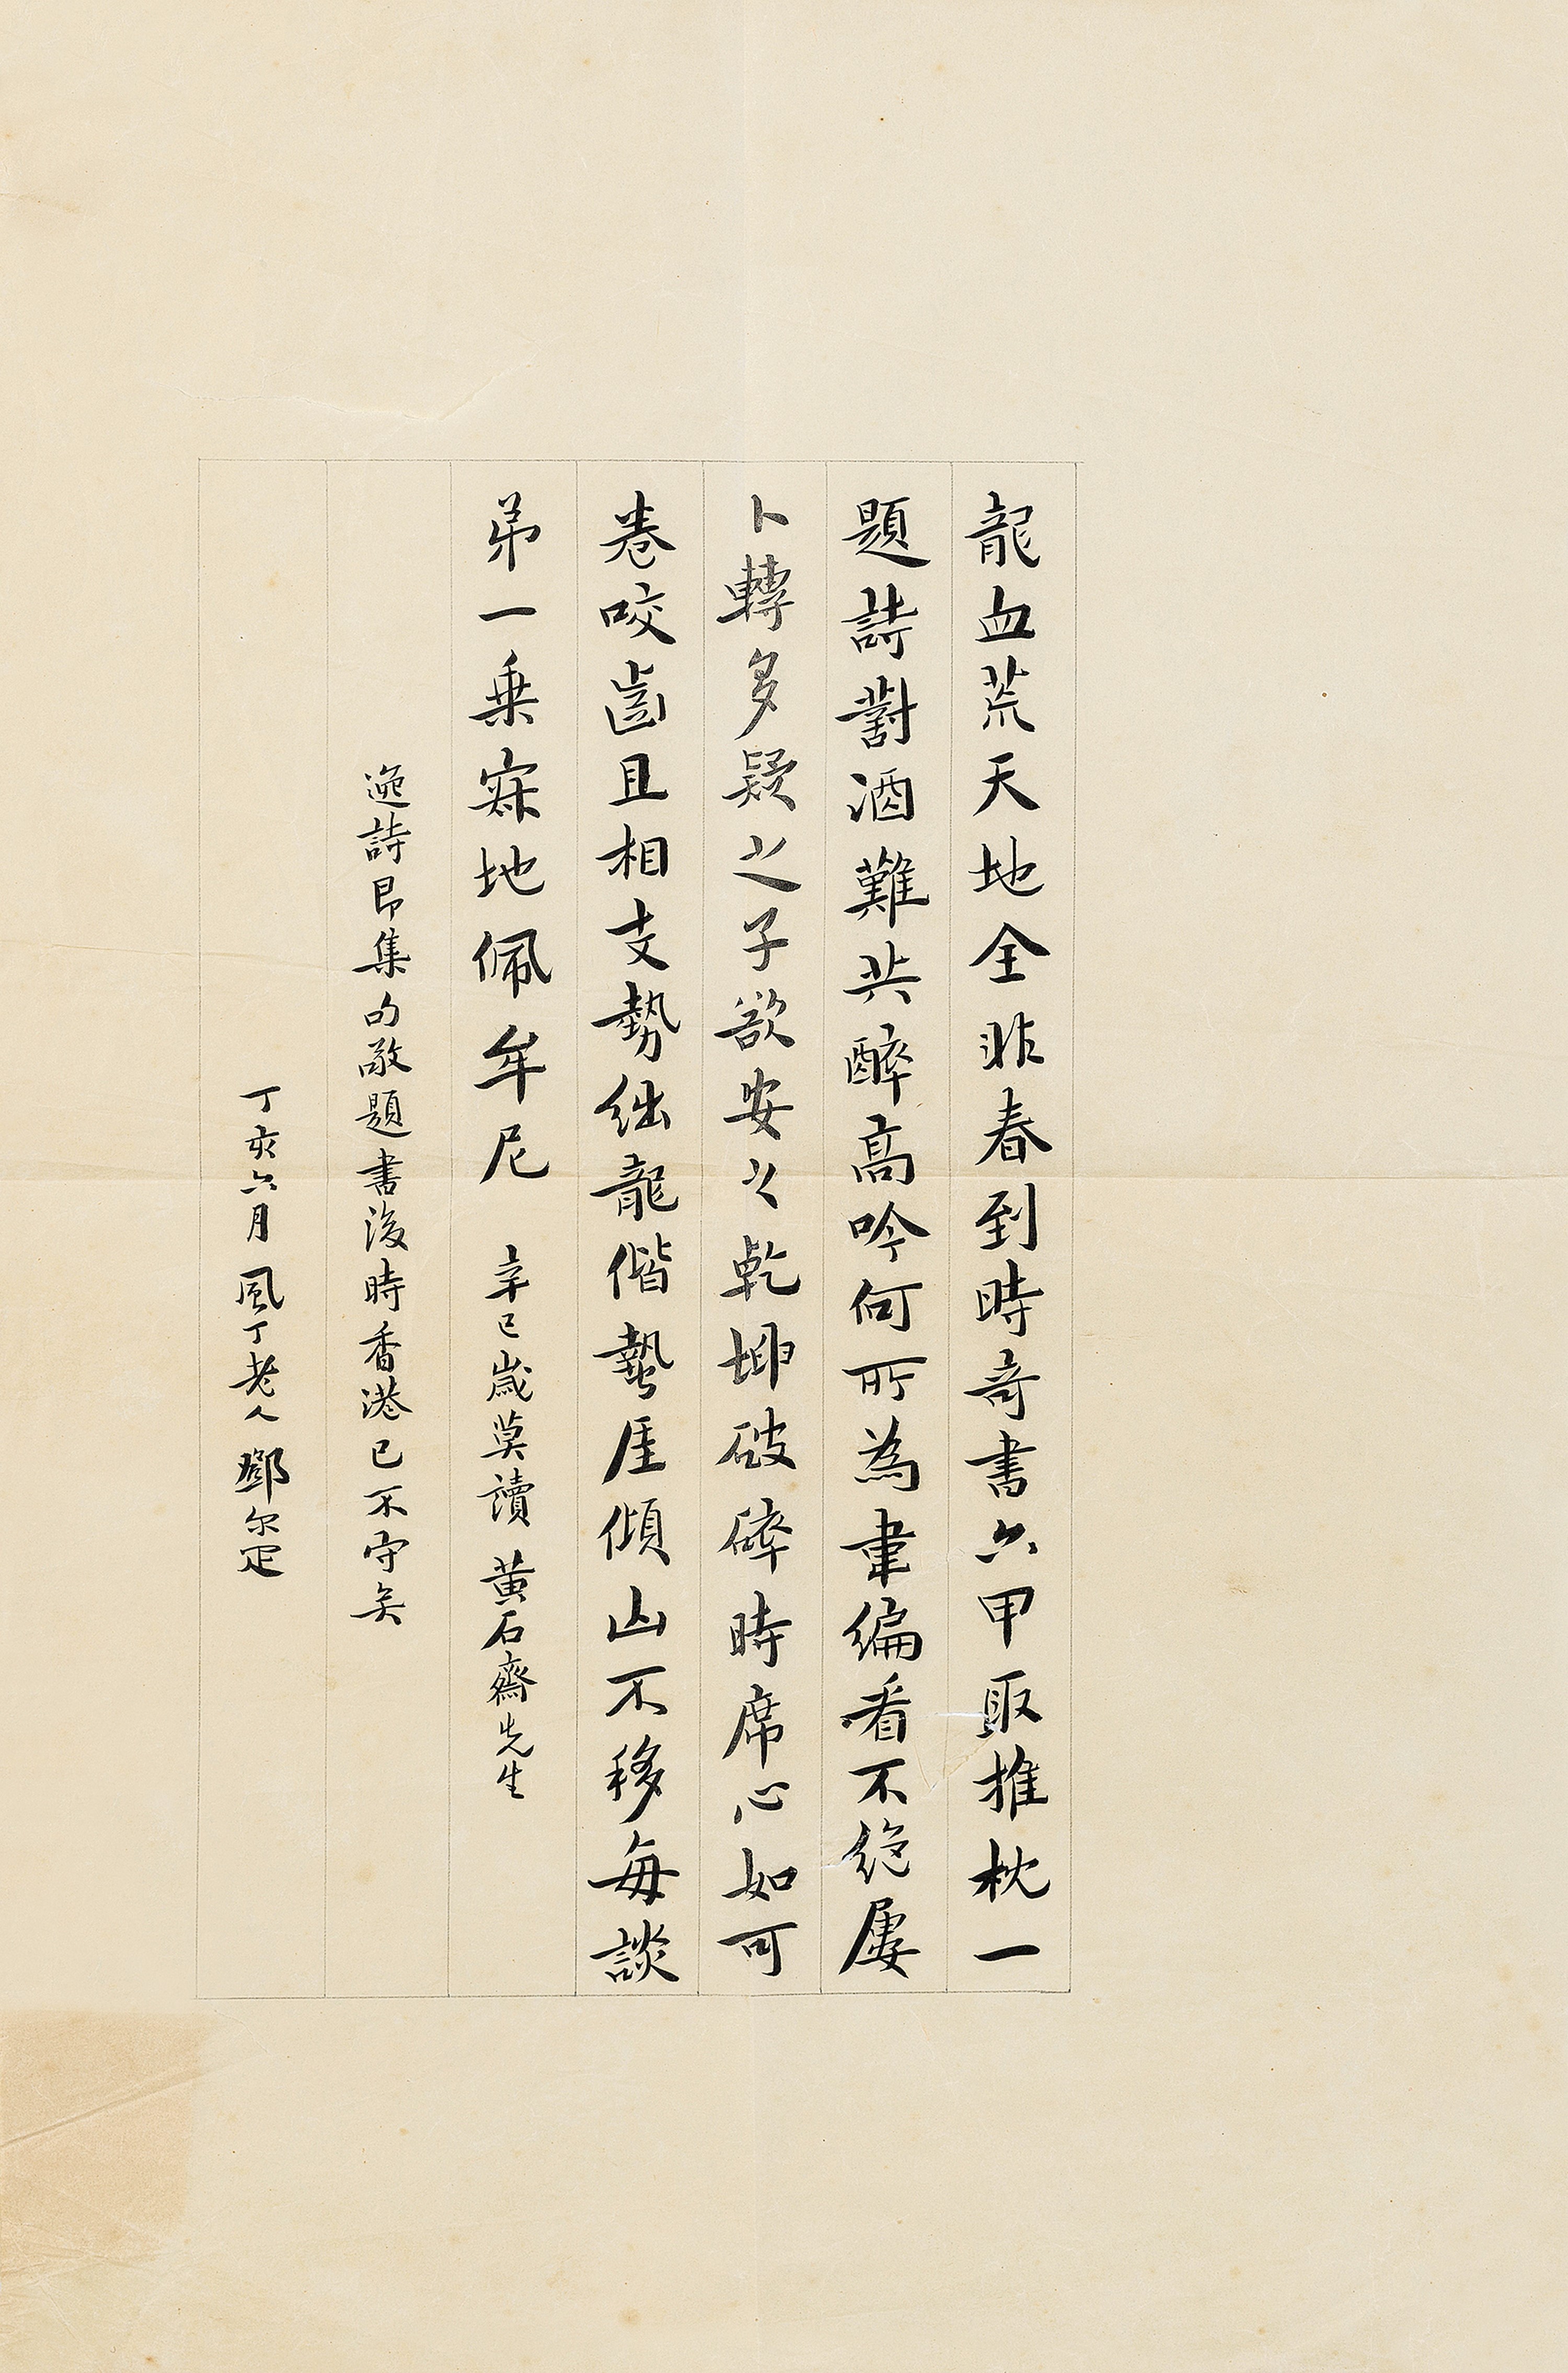 龍血荒天地全非春到時奇書六甲取推枕一
題詩對酒難共醉高吟何所為韋編看不絕屢
卜轉多疑之子欲安之乾坤破碎時席心如可
卷咬齒且相支勢絀龍偕蟄厓傾山不移每談
弟一乘寂地佩牟尼 辛巳歲莫讀 黃石齋先生
逸詩即集句敬題書後時香港已不守矣
丁亥六月 風丁老人鄧尔疋